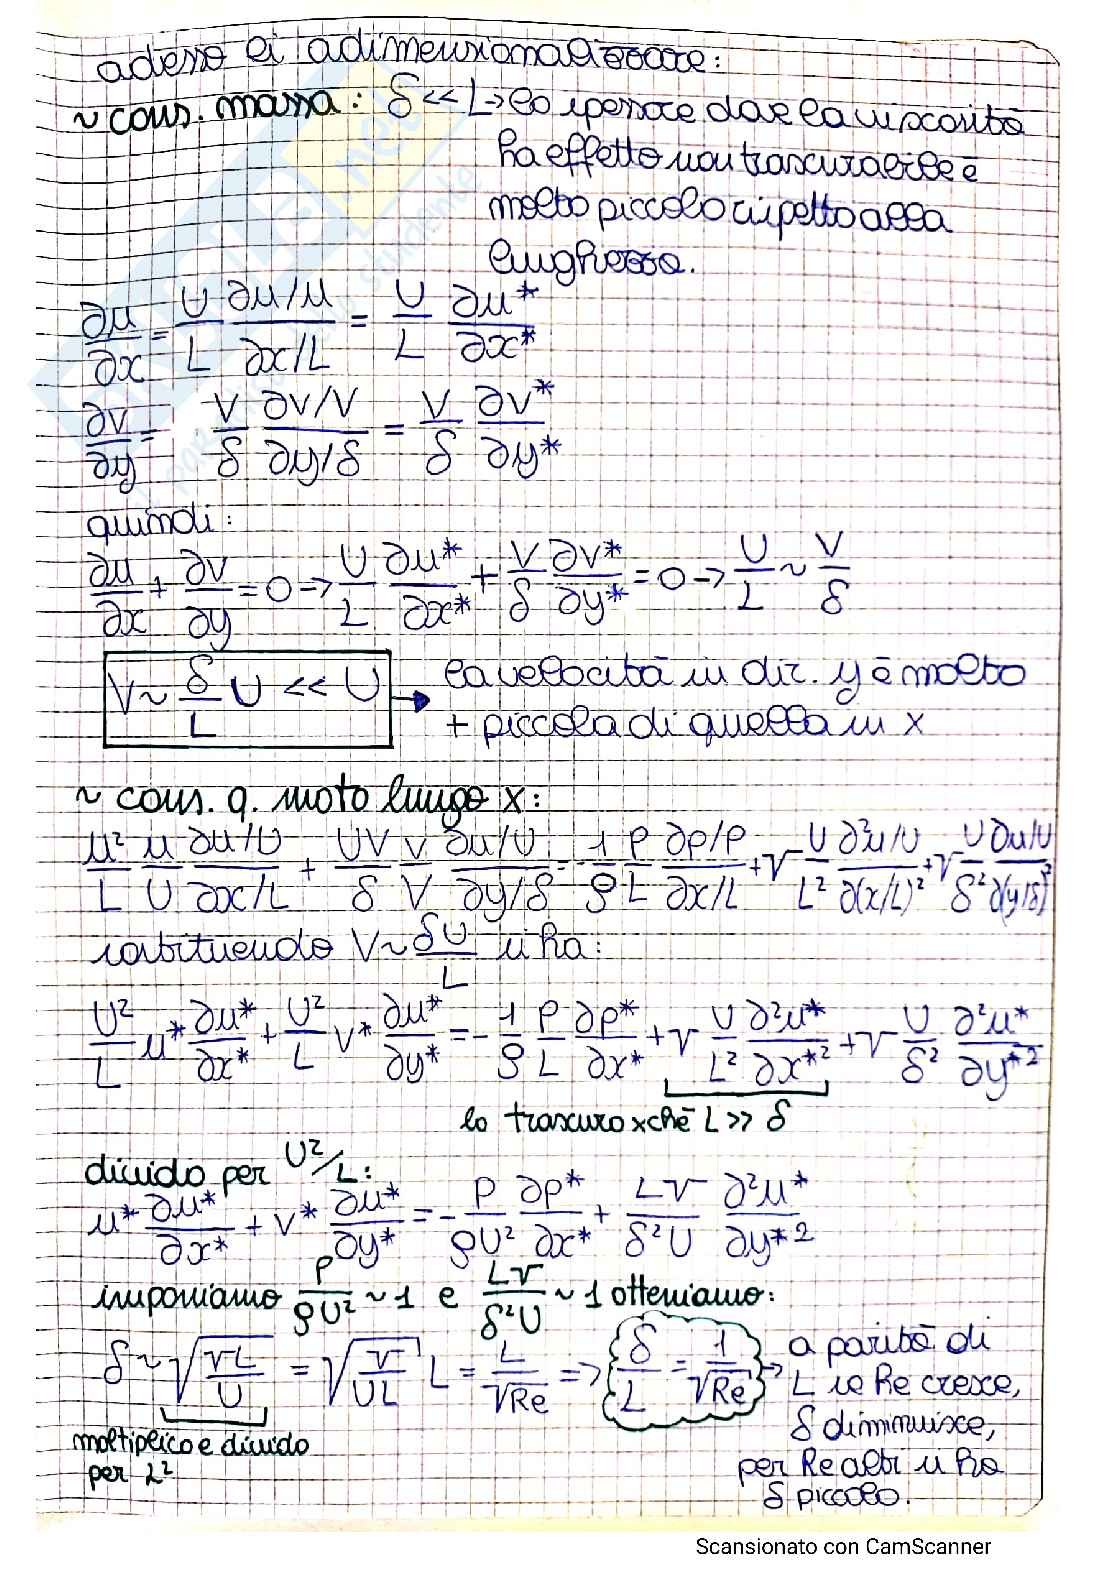 adesso si adimensionalizzare:
~ cons. massa: δ << L → lo spessore dove la viscosità
ha effetto non trascurabile è
molto piccolo rispetto alla
lunghezza.
∂u/∂x = U/L ∂u/U / ∂x/L = U/L ∂u*/∂x*
∂v/∂y = V/δ ∂v/V / ∂y/δ = V/δ ∂v*/∂y*
quindi:
∂u/∂x + ∂v/∂y = 0 → U/L ∂u*/∂x* + V/δ ∂v*/∂y* = 0 → U/L ~ V/δ
V ~ δ/L U << U → la velocità in dir. y è molto
+ piccola di quella in x
~ cons. q. moto lungo x:
U²/L u/U ∂u/U / ∂x/L + UV/δ v/V ∂u/U / ∂y/δ = - 1/ρ P/L ∂p/P / ∂x/L + ν U/L² ∂²u/U / ∂(x/L)² + ν U/δ² ∂u/U / ∂(y/δ)²
sostituendo V ~ δU/L si ha:
U²/L u* ∂u*/∂x* + U²/L v* ∂u*/∂y* = - 1/ρ P/L ∂p*/∂x* + ν U/L² ∂²u*/∂x*² + ν U/δ² ∂²u*/∂y*²
lo trascuro xchè L >> δ
divido per U²/L:
u* ∂u*/∂x* + v* ∂u*/∂y* = - P/ρU² ∂p*/∂x* + Lν/δ²U ∂²u*/∂y*²
imponiamo P/ρU² ~ 1 e Lν/δ²U ~ 1 otteniamo:
δ ~ √(νL/U) = √(ν/UL) L = L/√Re => δ/L = 1/√Re → a parità di
L se Re cresce,
δ diminuisce,
per Re alti si ha
δ piccolo.
moltiplico e divido
per L²
Scansionato con CamScanner